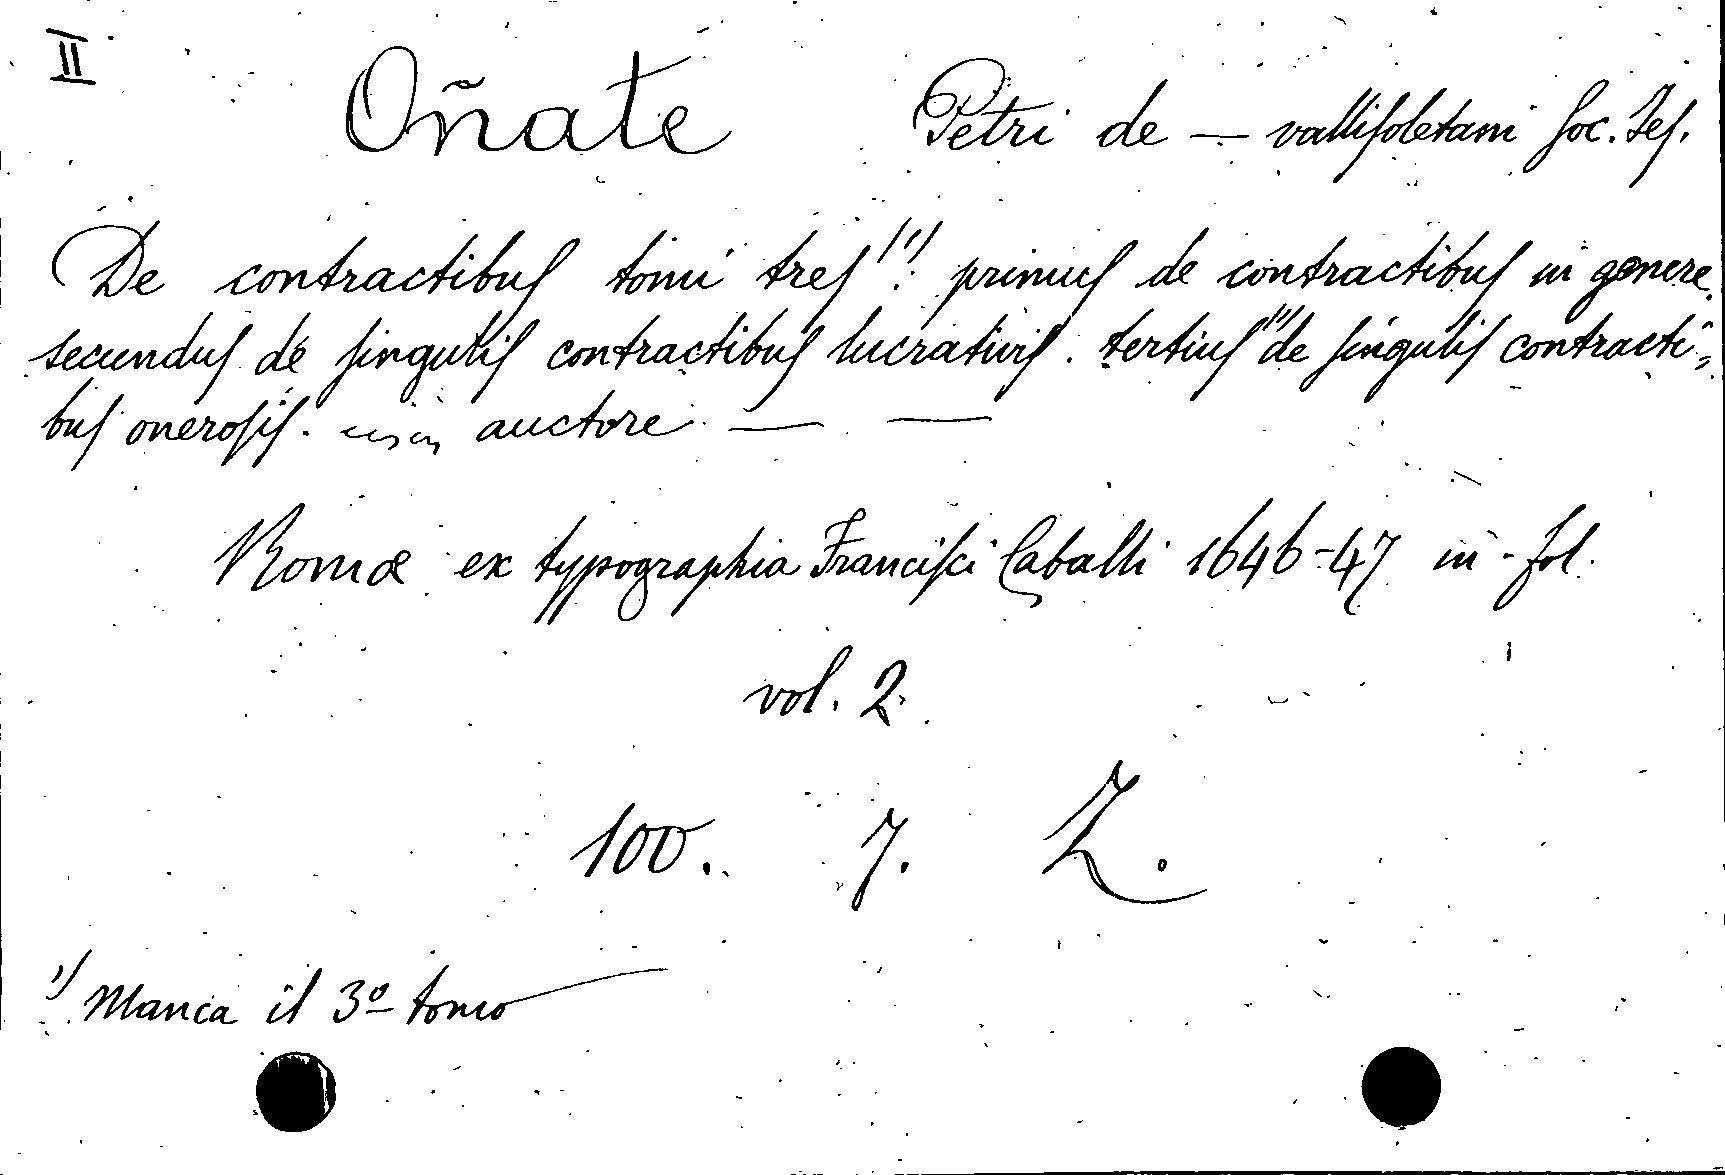 II
Oñate Petri de — vallisoletani Soc. Jes.
De contractibus tomi tres 1) primus de contractibus in genere.
secundus de singulis contractibus lucrativis. tertius 1) de singulis contracti-
bus onerosis. auctore — —
Romæ ex typographia Francisci Caballi 1646-47 in-fol.
vol. 2.
100. 7. Z.
1) Manca il 3º tomo